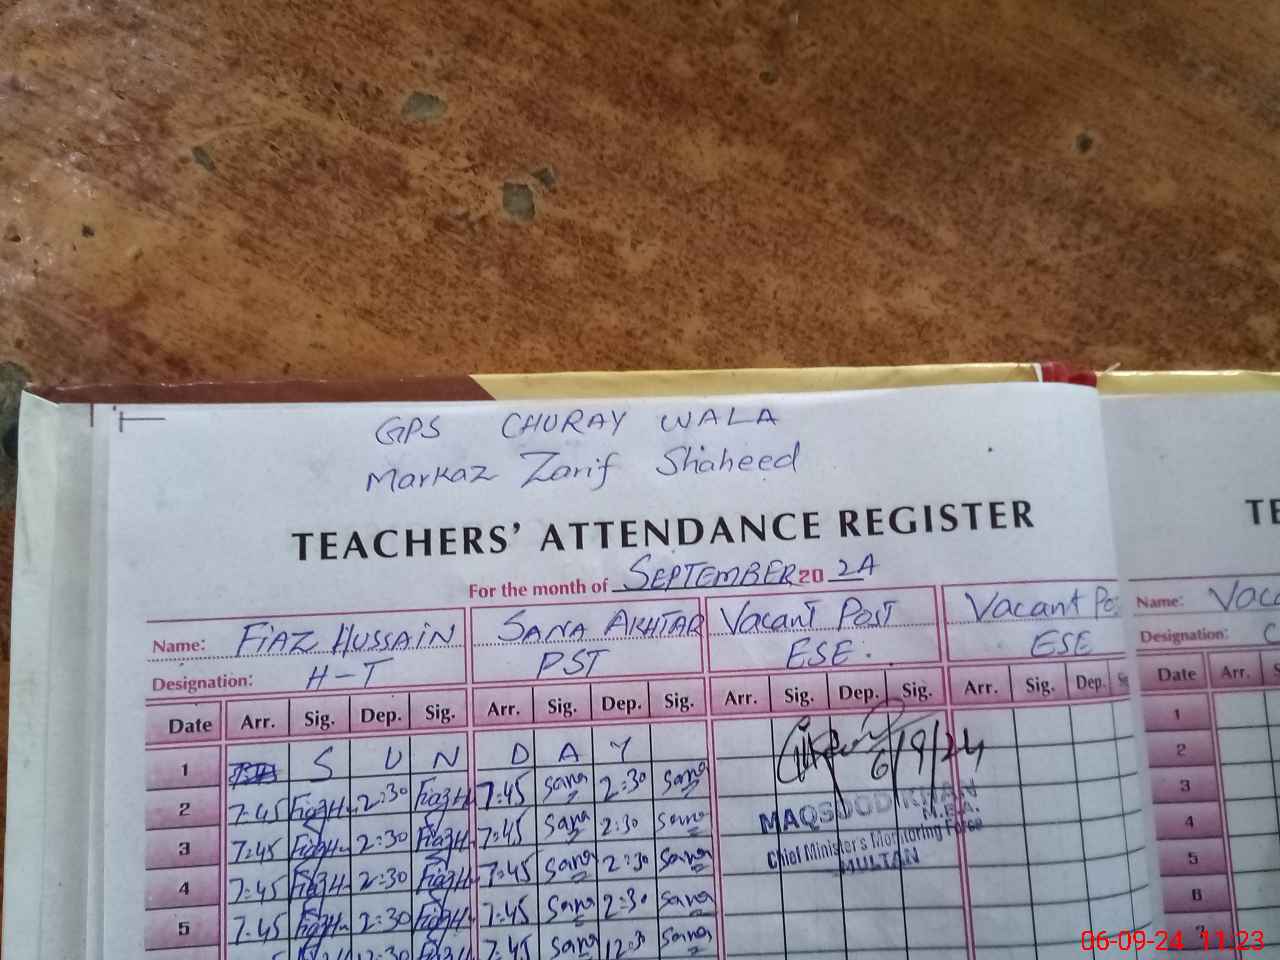 GPS CHURAY WALA
Markaz Zarif Shaheed
TEACHERS' ATTENDANCE REGISTER
For the month of SEPTEMBER 20 24
Name: FIAZ HUSSAIN SANA AKHTAR Vacant Post Vacant Po
Designation: H-T PST ESE. ESE
Date Arr. Sig. Dep. Sig. Arr. Sig. Dep. Sig. Arr. Sig. Dep. Sig. Arr. Sig. Dep.
1 S U N D A Y
2 7:45 FiazH 2:30 FiazH 7:45 Sana 2:30 Sana
3 7:45 FiazH 2:30 FiazH 7:45 Sana 2:30 Sana
4 7:45 FiazH 2:30 FiazH 7:45 Sana 2:30 Sana
5 7:45 FiazH 2:30 FiazH 7:45 Sana 2:30 Sana
7:45 Sana Sana
6/9/24
M.E.A.
Chief Minister's Monitoring Force
MULTAN
TE
Name: Vac
Designation: C
Date Arr.
1
2
3
4
5
6
7
06-09-24 11:23